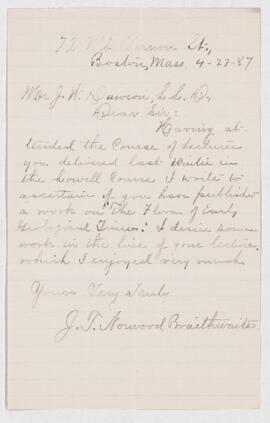 72 Mt. Vernon St.,
Boston, Mass. 4-27-87
Mr J. W. Dawson, L.L. D,
Dear Sir:
Having at-
tended the Course of lectures
you delivered last Winter in
the Lowell Course I write to
ascertain if you have published
a work on "The Flora of Early
Geological Times." I desire some
work in the line of your lecture,
which I enjoyed very much.
Yours Very Truly
J. T. Norwood Braithwaite